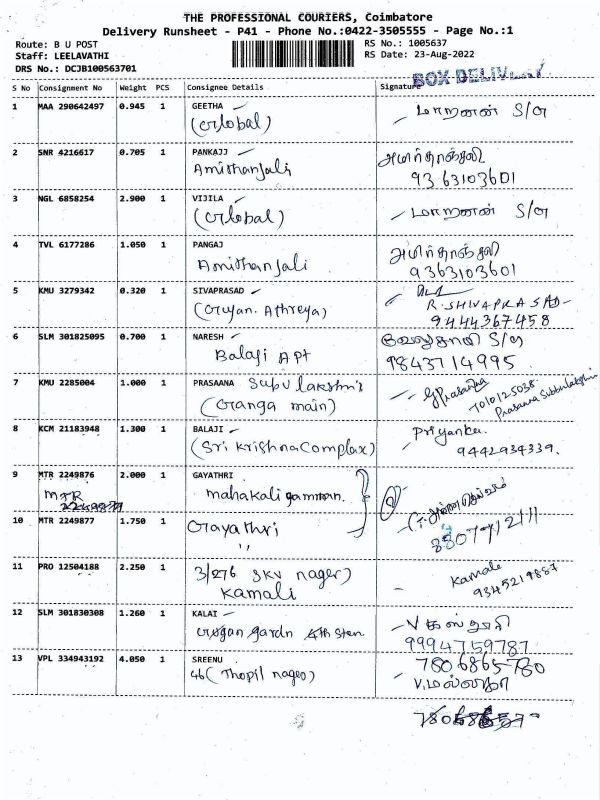 THE PROFESSIONAL COURIERS, Coimbatore
Delivery Runsheet - P41 - Phone No.:0422-3505555 - Page No.:1
Route: B U POST
RS No.: 1005637
Staff: LEELAVATHI
RS Date: 23-Aug-2022
DRS No.: DCJB100563701
BOX DELIVERY
S No Consignment No Weight PCS Consignee Details Signature
1 MAA 290642497 0.945 1 GEETHA
(Global) மாறனன் S/G
2 SNR 4216617 0.705 1 PANKAJJ
Amirthanjali அமிர்தாஞ்சலி
9363103601
3 NGL 6858254 2.900 1 VIJILA
(Global) மாறனன் S/G
4 TVL 6177286 1.050 1 PANGAJ
Amirthanjali அமிர்தாஞ்சலி
9363103601
5 KMU 3279342 0.320 1 SIVAPRASAD
(Gujan. Athreya) R. SHIVAPRASAD
9444367458
6 SLM 301825095 0.700 1 NARESH
Balaji Apt வேலுசாமி S/G
9843714995
7 KMU 2285004 1.000 1 PRASAANA Subulakshmi
(Ganga main) G Prasanna
7010125038
Prasanna Subbulakshmi
8 KCM 21183948 1.300 1 BALAJI
(Sri Krishna Complax) Priyanka.
9442934339.
9 MTR 2249876 2.000 1 GAYATHRI
MTR mahakaliamman.
10 MTR 2249877 1.750 1 Gayathri
,,
11 PRO 12504188 2.250 1 3/276 SKV nager)
Kamali Kamale
9345219887
12 SLM 301830308 1.260 1 KALAI
gardn 4th Sten.
9994759787
13 VPL 334943192 4.050 1 SREENU
46 (Thopil nager) 7806865780
V. மல்லிகா